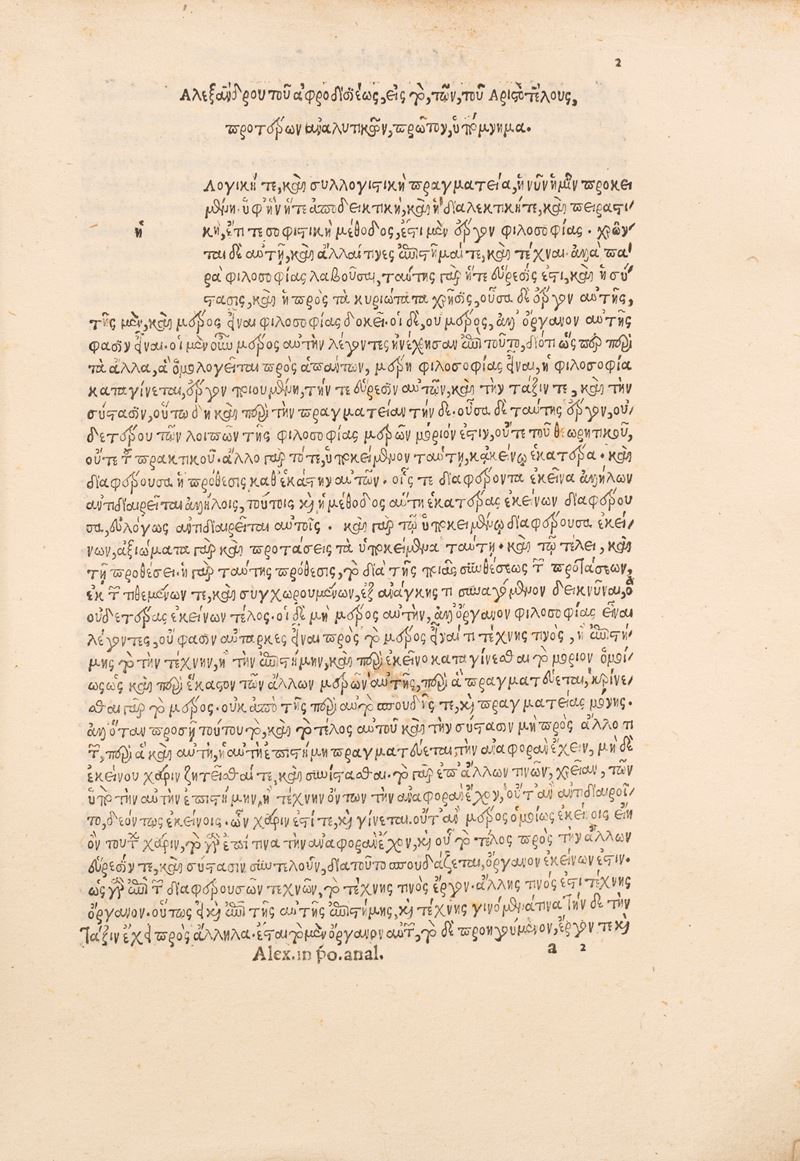 2
Αλεξάνδρου τοῦ ἀφροδισιέως, εἰς τὸ, τῶν, τοῦ Αριστοτέλους,
προτέρων ἀναλυτικῶν, πρῶτον, ὑπόμνημα.
Λογική τε, καὶ συλλογιστικὴ πραγματεία, ἡ νῦν ἡμῖν προκει
μένη· ὑφ' ἣν ἥτε ἀποδεικτικὴ, καὶ ἡ διαλεκτικήτε, καὶ πειραστι/
ἡ
κὴ, ἔτι τε σοφιστικὴ μέθοδος, ἔστι μὲν ἔργον φιλοσοφίας· χρῶν/
ται δὲ αὐτῇ, καὶ ἄλλαι τινες ἐπιστῆμαί τε, καὶ τέχναι· ἀλλὰ πα/
ρὰ φιλοσοφίας λαβοῦσαι, ταύτης γὰρ ἥτε εὕρεσίς ἐστι, καὶ ἡ σύ/
στασις, καὶ ἡ πρὸς τὰ κυριώτατα χρῆσις, οὖσα δὲ ἔργον αὐτῆς,
τῆς μὲν, καὶ μέρος εἶναι φιλοσοφίας δοκεῖ· οἱ δὲ, ου μέρος, ἀλλ' ὄργανον αὐτῆς
φασὶν εἶναι· οἱ μὲν οὖν μέρος αὐτὴν λέγοντες ἠνέχθησαν ἐπὶ τοῦτο, διότι ὥσπερ περὶ
τὰ ἄλλα, ἃ ὁμολογεῖται πρὸς ἁπάντων, μέρη φιλοσοφίας εἶναι, ἡ φιλοσοφία
καταγίνεται, ἔργον ποιουμένη, τήν τε εὕρεσιν αὐτῶν, καὶ τὴν τάξιν τε, καὶ τὴν
σύστασιν, οὕτω δὴ καὶ περὶ τὴν πραγματείαν τήν δε· οὖσα δὲ ταύτης ἔργον, ου/
δετέρου τῶν λοιπῶν τῆς φιλοσοφίας μερῶν μόριόν ἐστιν, οὔτε τοῦ θεωρητικοῦ,
οὔτε τοῦ πρακτικοῦ· ἄλλο γὰρ τότε, ὑποκείμενον ταύτῃ, κἀκείνῳ ἑκατέρα· καὶ
διαφέρουσα ἡ πρόθεσις καθ' ἑκάστην αὐτῶν· οἷς τε διαφέροντα ἐκεῖνα ἀλλήλων
ἀντιδιαιρεῖται ἀλλήλοις, τούτοις καὶ ἡ μέθοδος αὕτη ἑκατέρας ἐκείνων διαφέρου
σα, εὐλόγως ἀντιδιαιρεῖται αὐτοῖς· καὶ γὰρ τῷ ὑποκειμένῳ διαφέρουσα ἐκεί/
νων, ἀξιώματα γὰρ καὶ προτάσεις τὰ ὑποκείμενα ταύτῃ· καὶ τῷ τέλει, καὶ
τῇ προθέσει· ἡ γὰρ ταύτης πρόθεσις, τὸ διὰ τῆς ποιᾶς συνθέσεως τῶν προτάσεων,
ἐκ τῶν τιθεμένων τε, καὶ συγχωρουμένων, ἐξ ἀνάγκης τι συναγόμενον δεικνῦναι, ὃ
οὐδετέρας ἐκείνων τέλος· οἱ δὲ μὴ μέρος αὐτὴν, ἀλλ' ὄργανον φιλοσοφίας εἶναι
λέγοντες, οὔ φασιν αὔταρκες εἶναι πρὸς τὸ μέρος εἶναί τι τέχνης τινος, ἢ ἐπιστή/
μης τὸ τὴν τέχνην, ἢ τὴν ἐπιστήμην, καὶ περὶ ἐκεῖνο καταγίνεσθαι τὸ μοριον ὁμοί/
ως ὡς καὶ περὶ ἕκαστον τῶν ἄλλων μερῶν αὐτῆς, περὶ ἃ πραγματεύεται, κρίνε/
σθαι γὰρ τὸ μέρος· οὐκ ἀπὸ τῆς περὶ αὐτὸ σπουδῆς τε, καὶ πραγματείας μόνης·
ἀλλ' ὅταν προσῇ τούτου τὸ, καὶ τὸ τέλος αὐτοῦ καὶ τὴν σύστασιν μὴ πρὸς ἄλλο τι
τῶν, περὶ ἃ καὶ αὐτὴ, ἡ αὐτὴ ἐπιστήμη πραγματεύεται, τὴν ἀναφορὰν ἔχειν, μὴ δὲ
ἐκείνου χάριν ζητεῖσθαί τε, καὶ συνίστασθαι· τὸ γὰρ ἐπ' ἄλλων τινῶν, χρείαν, τῶν
ὑπὸ τὴν αὐτὴν ἐπιστήμην, ἢ τέχνην ὄντων τὴν ἀναφορὰν ἔχον, οὔτ' ἂν ἀντιδιαιροῖ/
το, δεόντως ἐκείνοις· ὧν χάριν ἐστί τε, καὶ γίνεται· οὔτ' ἂν μέρος ὁμοίως ἐκείνοις εἴη
ὃν τούτων χάριν, τὸ γὰρ ἐπί τινα τὴν ἀναφορὰν ἔχον, καὶ οὗ τὸ τέλος πρὸς τὴν ἄλλων
εὕρεσίν τε, καὶ σύστασιν συντελοῦν, διατοῦτο σπουδάζεται, ὄργανον ἐκείνων ἐστίν·
ὡς γὰρ ἐπὶ τῶν διαφερουσῶν τεχνῶν, τὸ τέχνης τινὸς ἔργον· ἄλλης τινός ἐστι τέχνης
ὄργανον· οὕτως εἰ καὶ ἐπὶ τῆς αὐτῆς ἐπιστήμης, καὶ τέχνης γινόμενά τινα τήν δε τὴν
τάξιν ἔχει πρὸς ἄλληλα· ἔσται τὸ μὲν ὄργανον αὐτῶν, τὸ δὲ προηγούμενον, ἔργον τε καὶ
Alex.in ṕo.anal. a 2